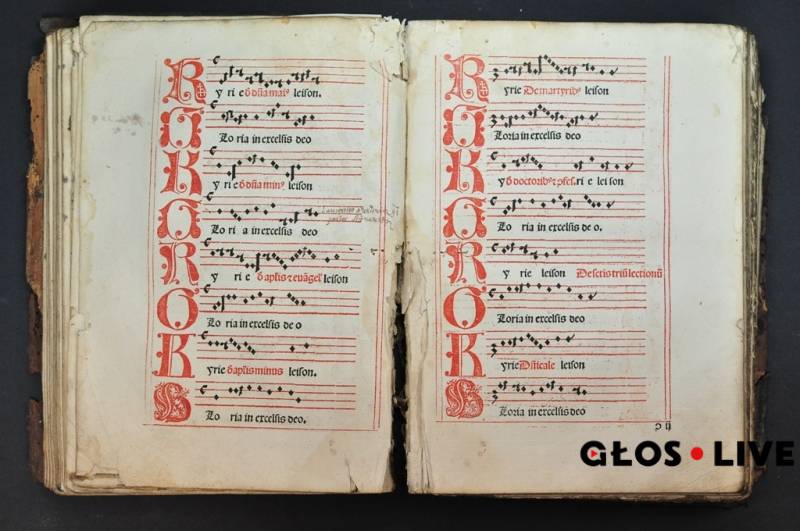 K
yri e ō dn̄a mai⁹ leison.
G
Lo ria in excelsis deo
K
y ri e ō dn̄a min⁹ leison
G
Lo ri a in excelsis deo
K
y ri e ō aplis ⁊ evāgel' leison
G
Lo ria in excelsis de o
K
yrie ō aplis minus leison.
G
Lo ria in excelsis deo.
K
yrie De martyrib⁹ leison
G
Loria in excelsis deo
K
y ō doctorib⁹ ⁊ ri e lei son
G
Lo ria in excelsis de o.
K
y rie leison De sctis triū lectionū
G
Loria in excelsis deo
K
yrie Dn̄icale leison
G
Loria in excelsis deo
GŁOS LIVE